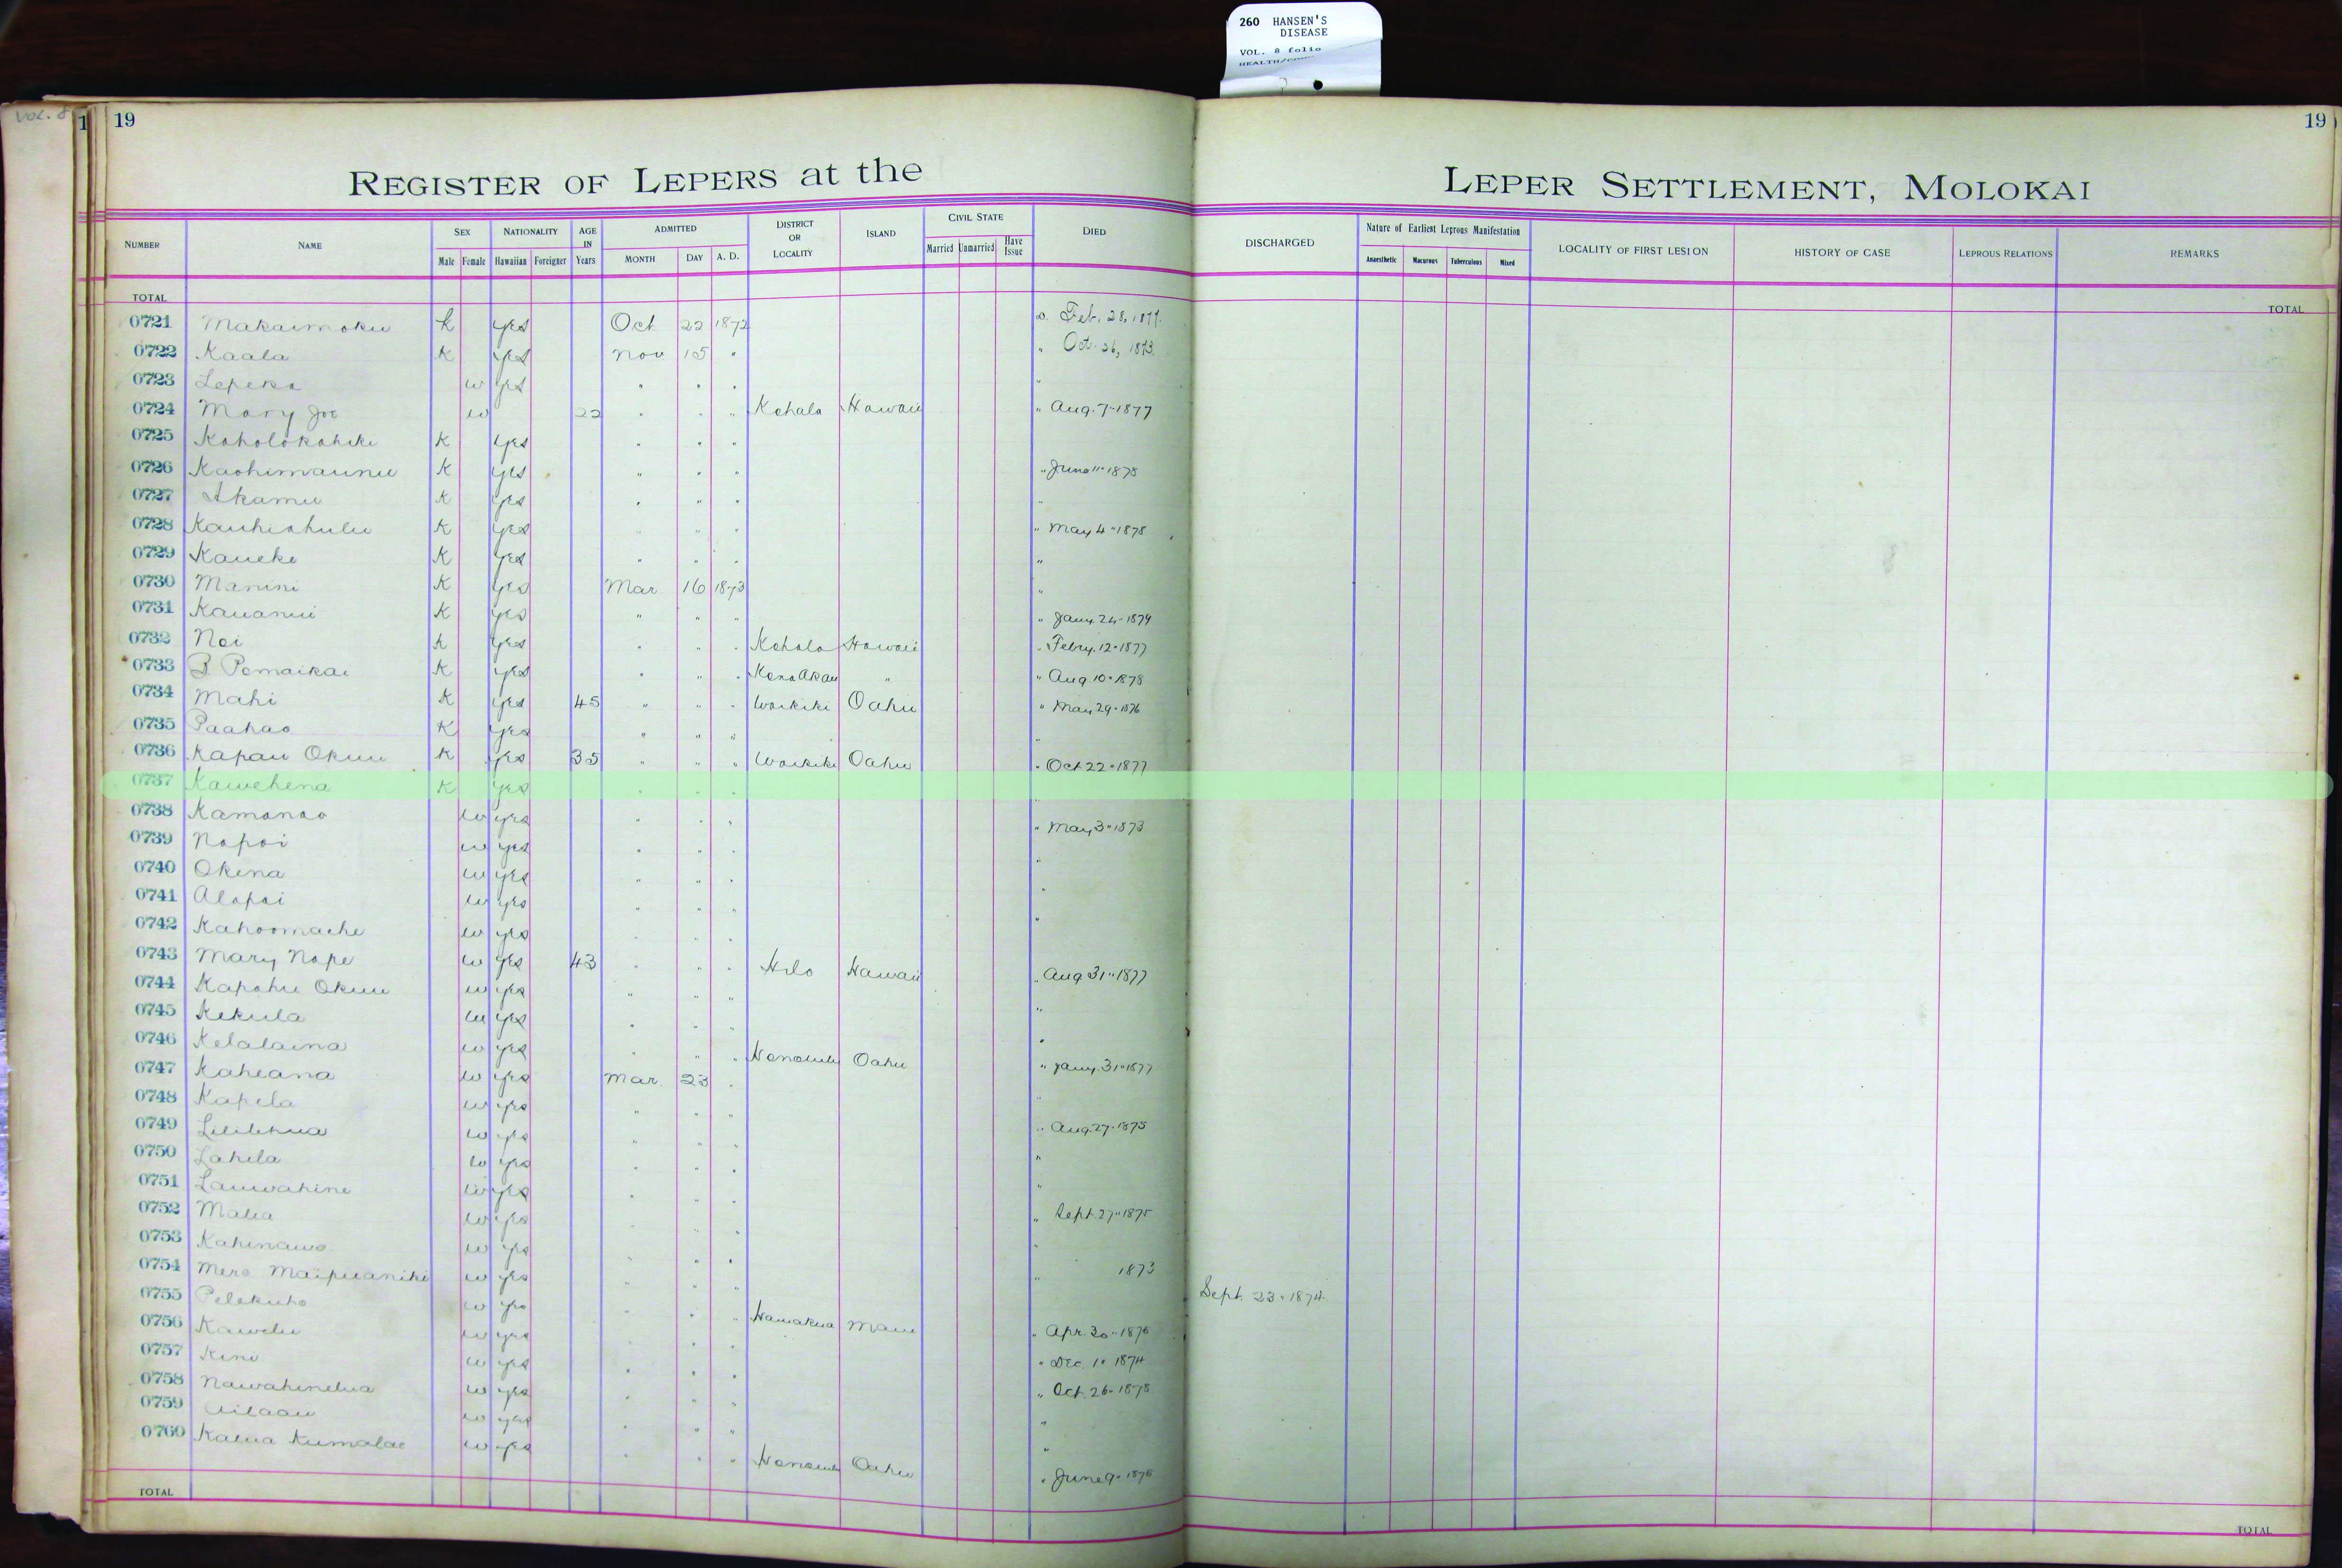 260 HANSEN'S
DISEASE
VOL. 8 folio
Vol. 8
1 19 19
REGISTER OF LEPERS at the LEPER SETTLEMENT, MOLOKAI
NUMBER NAME SEX Male Female NATIONALITY Hawaiian Foreigner AGE IN Years ADMITTED MONTH DAY A. D. DISTRICT OR LOCALITY ISLAND CIVIL STATE Married Unmarried Have Issue DIED DISCHARGED Nature of Earliest Leprous Manifestation Anaesthetic Macurous Tuberculous Mixed LOCALITY OF FIRST LESION HISTORY OF CASE LEPROUS RELATIONS REMARKS
TOTAL TOTAL
0721 Makaimoku k yes Oct. 22 1872 D. Feb. 28, 1877.
0722 Kaala K yes Nov 15 " " Oct. 26, 1873.
0723 Lepeka w yes " " " "
0724 Mary Joe w 22 " " " Kohala Hawaii " Aug. 7 " 1877
0725 Koholokahiki K yes " " "
0726 Kaohimaunu K yes " " " " June 11 " 1875
0727 Akamu K yes " " " "
0728 Kauhiahulu K yes " " " " May 4 " 1878
0729 Kaueke K yes " " " "
0730 Manini K yes Mar 16 1873 "
0731 Kauanui K yes " " " " Jany. 24 " 1874
0732 Noi K yes " " " Kohala Hawaii " Febry. 12 " 1877
0733 B Pomaikai K yes " " " Kona Akau " " Aug 10 " 1878
0734 Mahi K yes 45 " " " Waikiki Oahu " May 29 " 1876
0735 Paahao K yes " " " "
0736 Kapau Okuu K yes 35 " " " Waikiki Oahu " Oct 22 " 1877
0737 Kawehena K yes " " " "
0738 Kamanao w yes " " " " May 3 " 1873
0739 Napoi w yes " " " "
0740 Okina w yes " " " "
0741 Alapai w yes " " " "
0742 Kahoomaehe w yes " " "
0743 Mary Nape w yes 43 " " " Hilo Hawaii " Aug 31 " 1877
0744 Kapahu Okuu w yes " " " "
0745 Kekula w yes " " " "
0746 Kelalaina w yes " " " Honolulu Oahu " Jany. 31 " 1877
0747 Kaheana w yes Mar. 23 " "
0748 Kapela w yes " " " " Aug. 27 " 1875
0749 Lililehua w yes " " " "
0750 Lahela w yes " " " "
0751 Lauwahine w yes " " " " Sept. 27 " 1875
0752 Malia w yes " " " "
0753 Kahinawe w yes " " " " 1873
0754 Mere Maipuaniki w yes " " " Sept. 23 " 1874
0755 Pelekuho w yes " " " Hamakua Maui " Apr. 30 " 1876
0756 Kawelu w yes " " " " Dec. 10 1874
0757 Kini w yes " " " " Oct. 26 " 1875
0758 Nawahinelua w yes " " " "
0759 Ailaau w yes " " " "
0760 Kalua Kumalae w yes " " " Honolulu Oahu " June 9 " 1876
TOTAL TOTAL